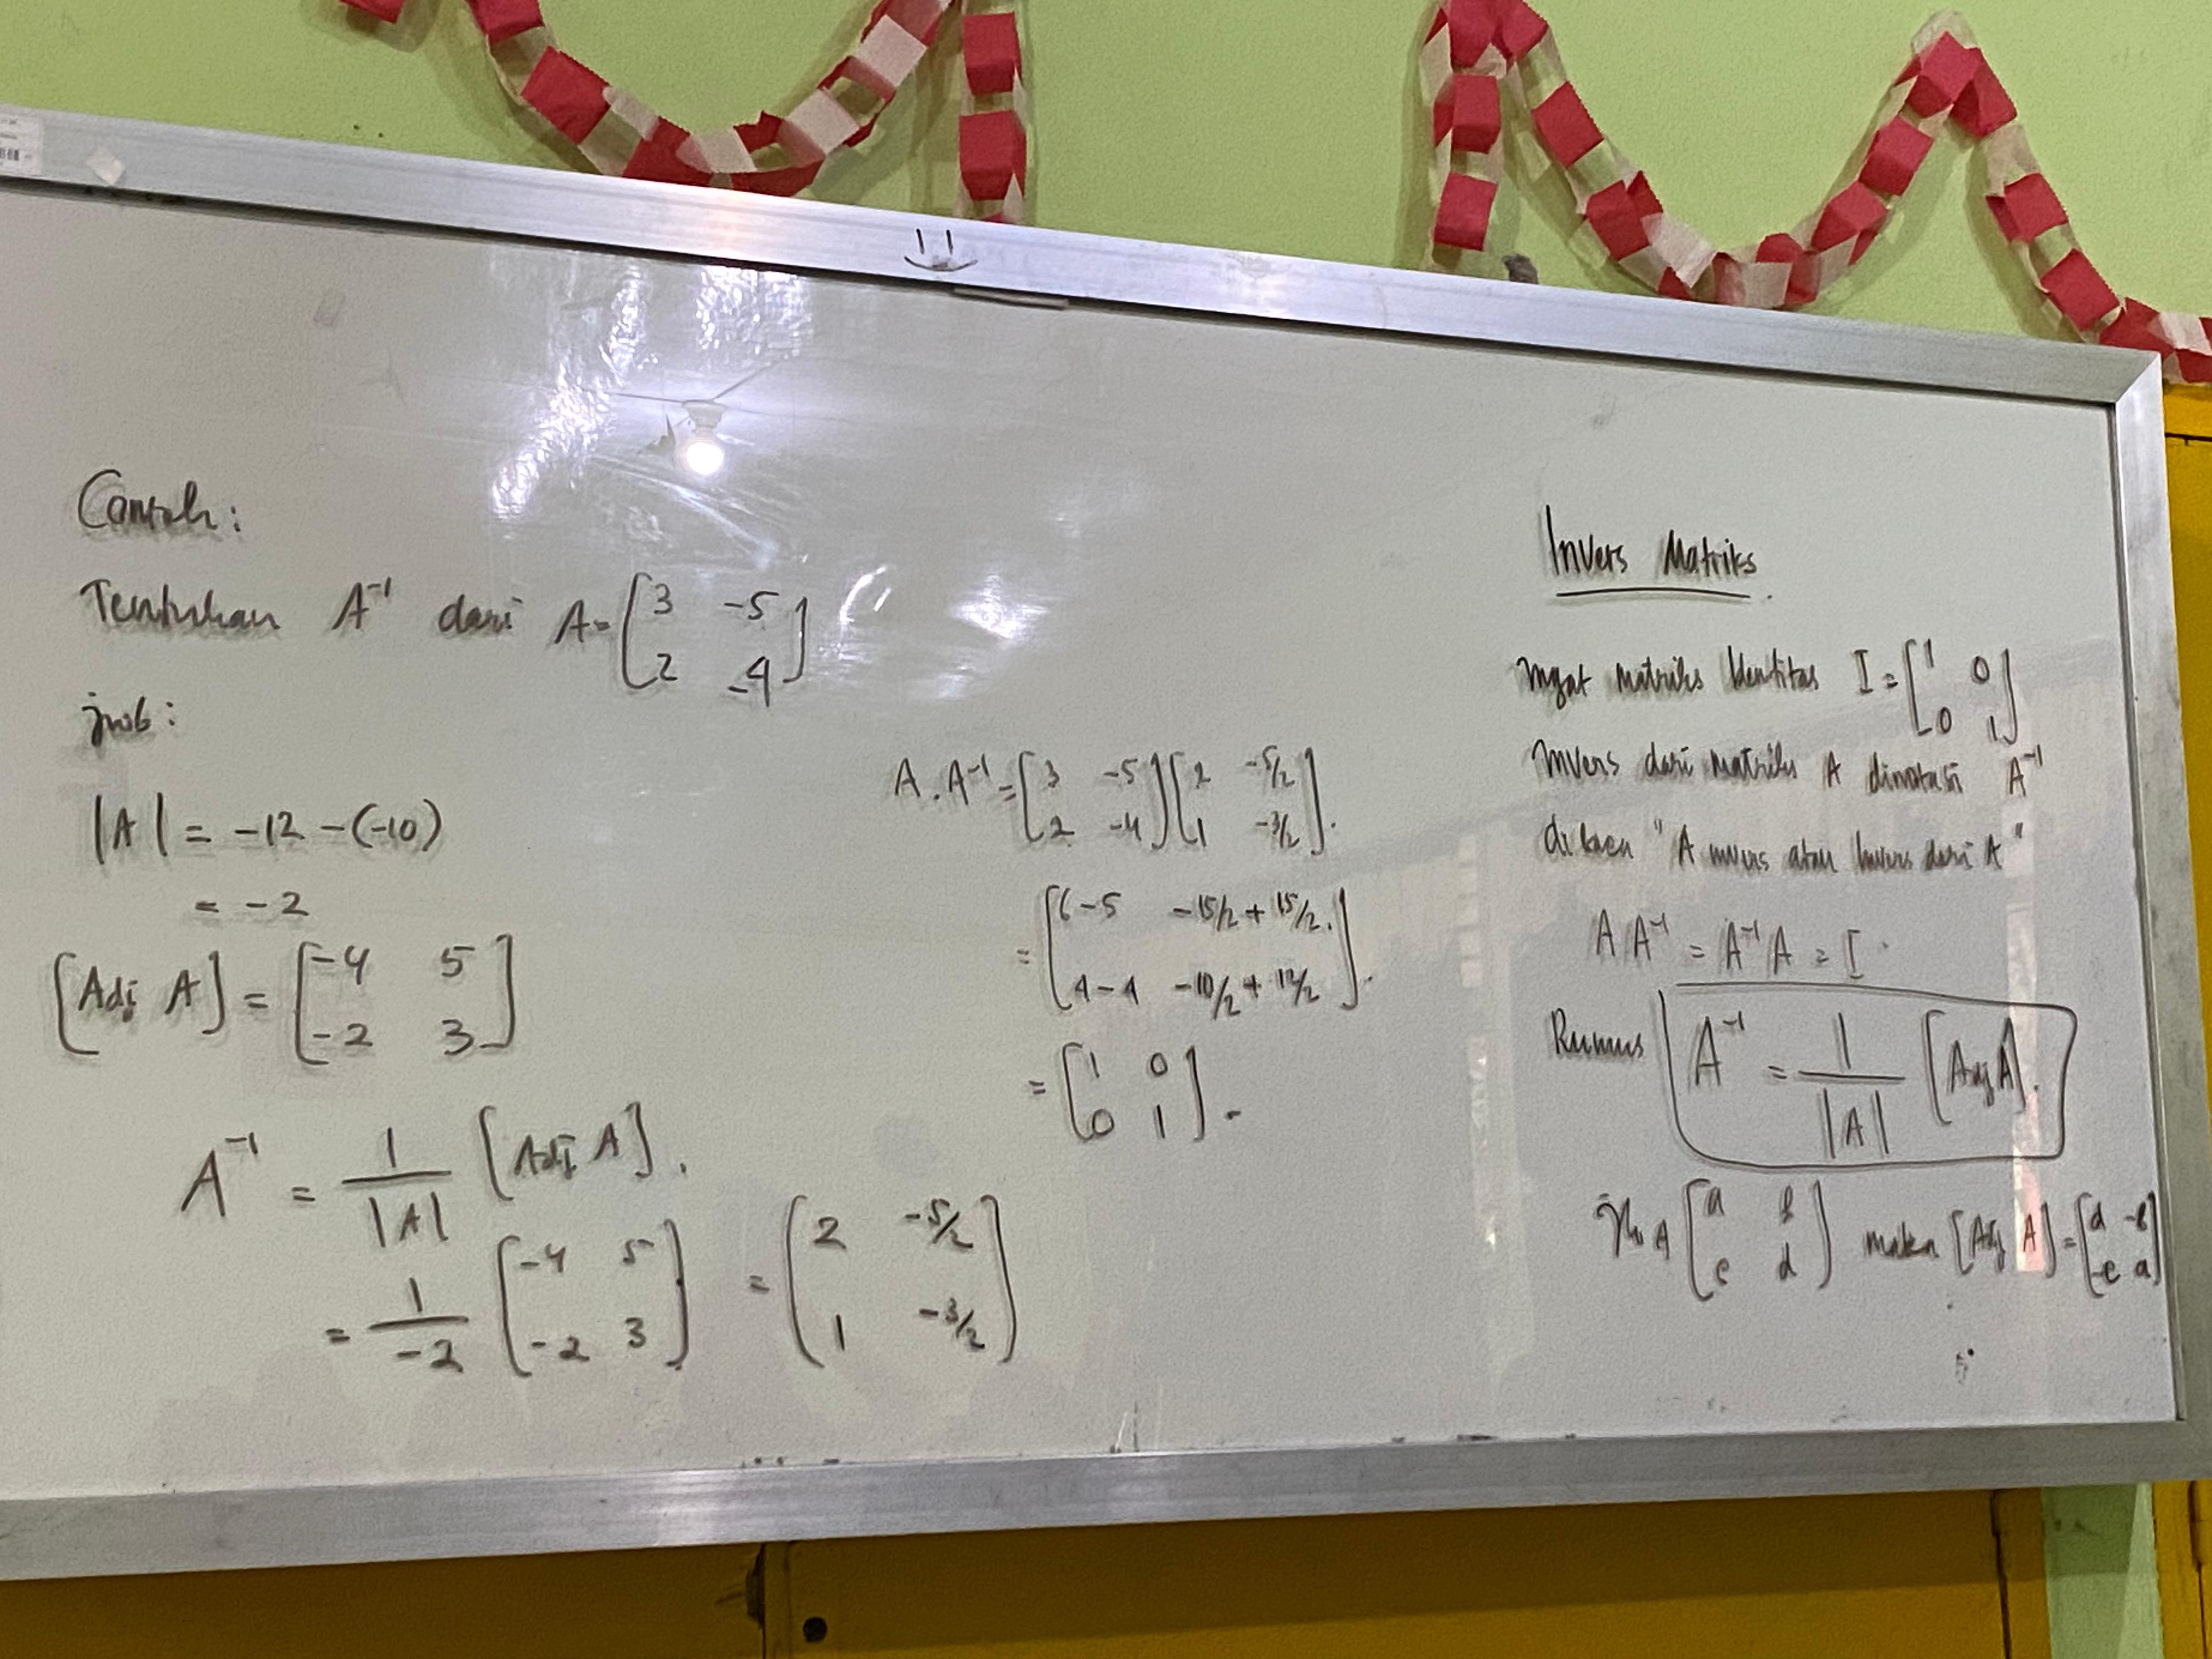 Contoh:
Tentukan A⁻¹ dari A = [3 -5
2 -4]
jwb:
|A| = -12 - (-10)
= -2
[Adj A] = [-4 5
-2 3]
A⁻¹ = 1/|A| [Adj A].
= 1/-2 [-4 5
-2 3] = (2 -5/2
1 -3/2)
A . A⁻¹ = [3 -5
2 -4] [2 -5/2
1 -3/2].
= [6-5 -15/2 + 15/2.
4-4 -10/2 + 12/2].
= [1 0
0 1].
Invers Matriks.
Ingat matriks Identitas I = [1 0
0 1]
Invers dari matriks A dinotasi A⁻¹
dibaca "A invers atau Invers dari A"
A A⁻¹ = A⁻¹ A = I
Rumus A⁻¹ = 1/|A| [Adj A].
Jk A [a b
c d] maka [Adj A] = [d -b
-c a]